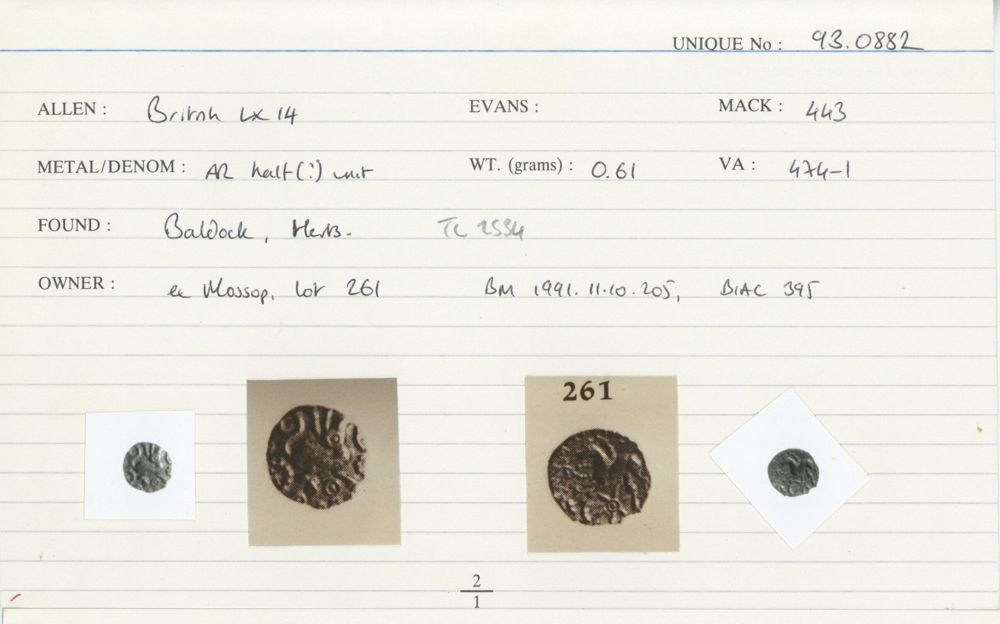 UNIQUE No : 93.0882
ALLEN : British LX 14 EVANS : MACK : 443
METAL/DENOM : AR half(?) unit WT. (grams) : 0.61 VA : 474-1
FOUND : Baldock, Herts. TC 2534
OWNER : ex Mossop, lot 261 BM 1991.11.10.205, BIAC 395
261
2
1